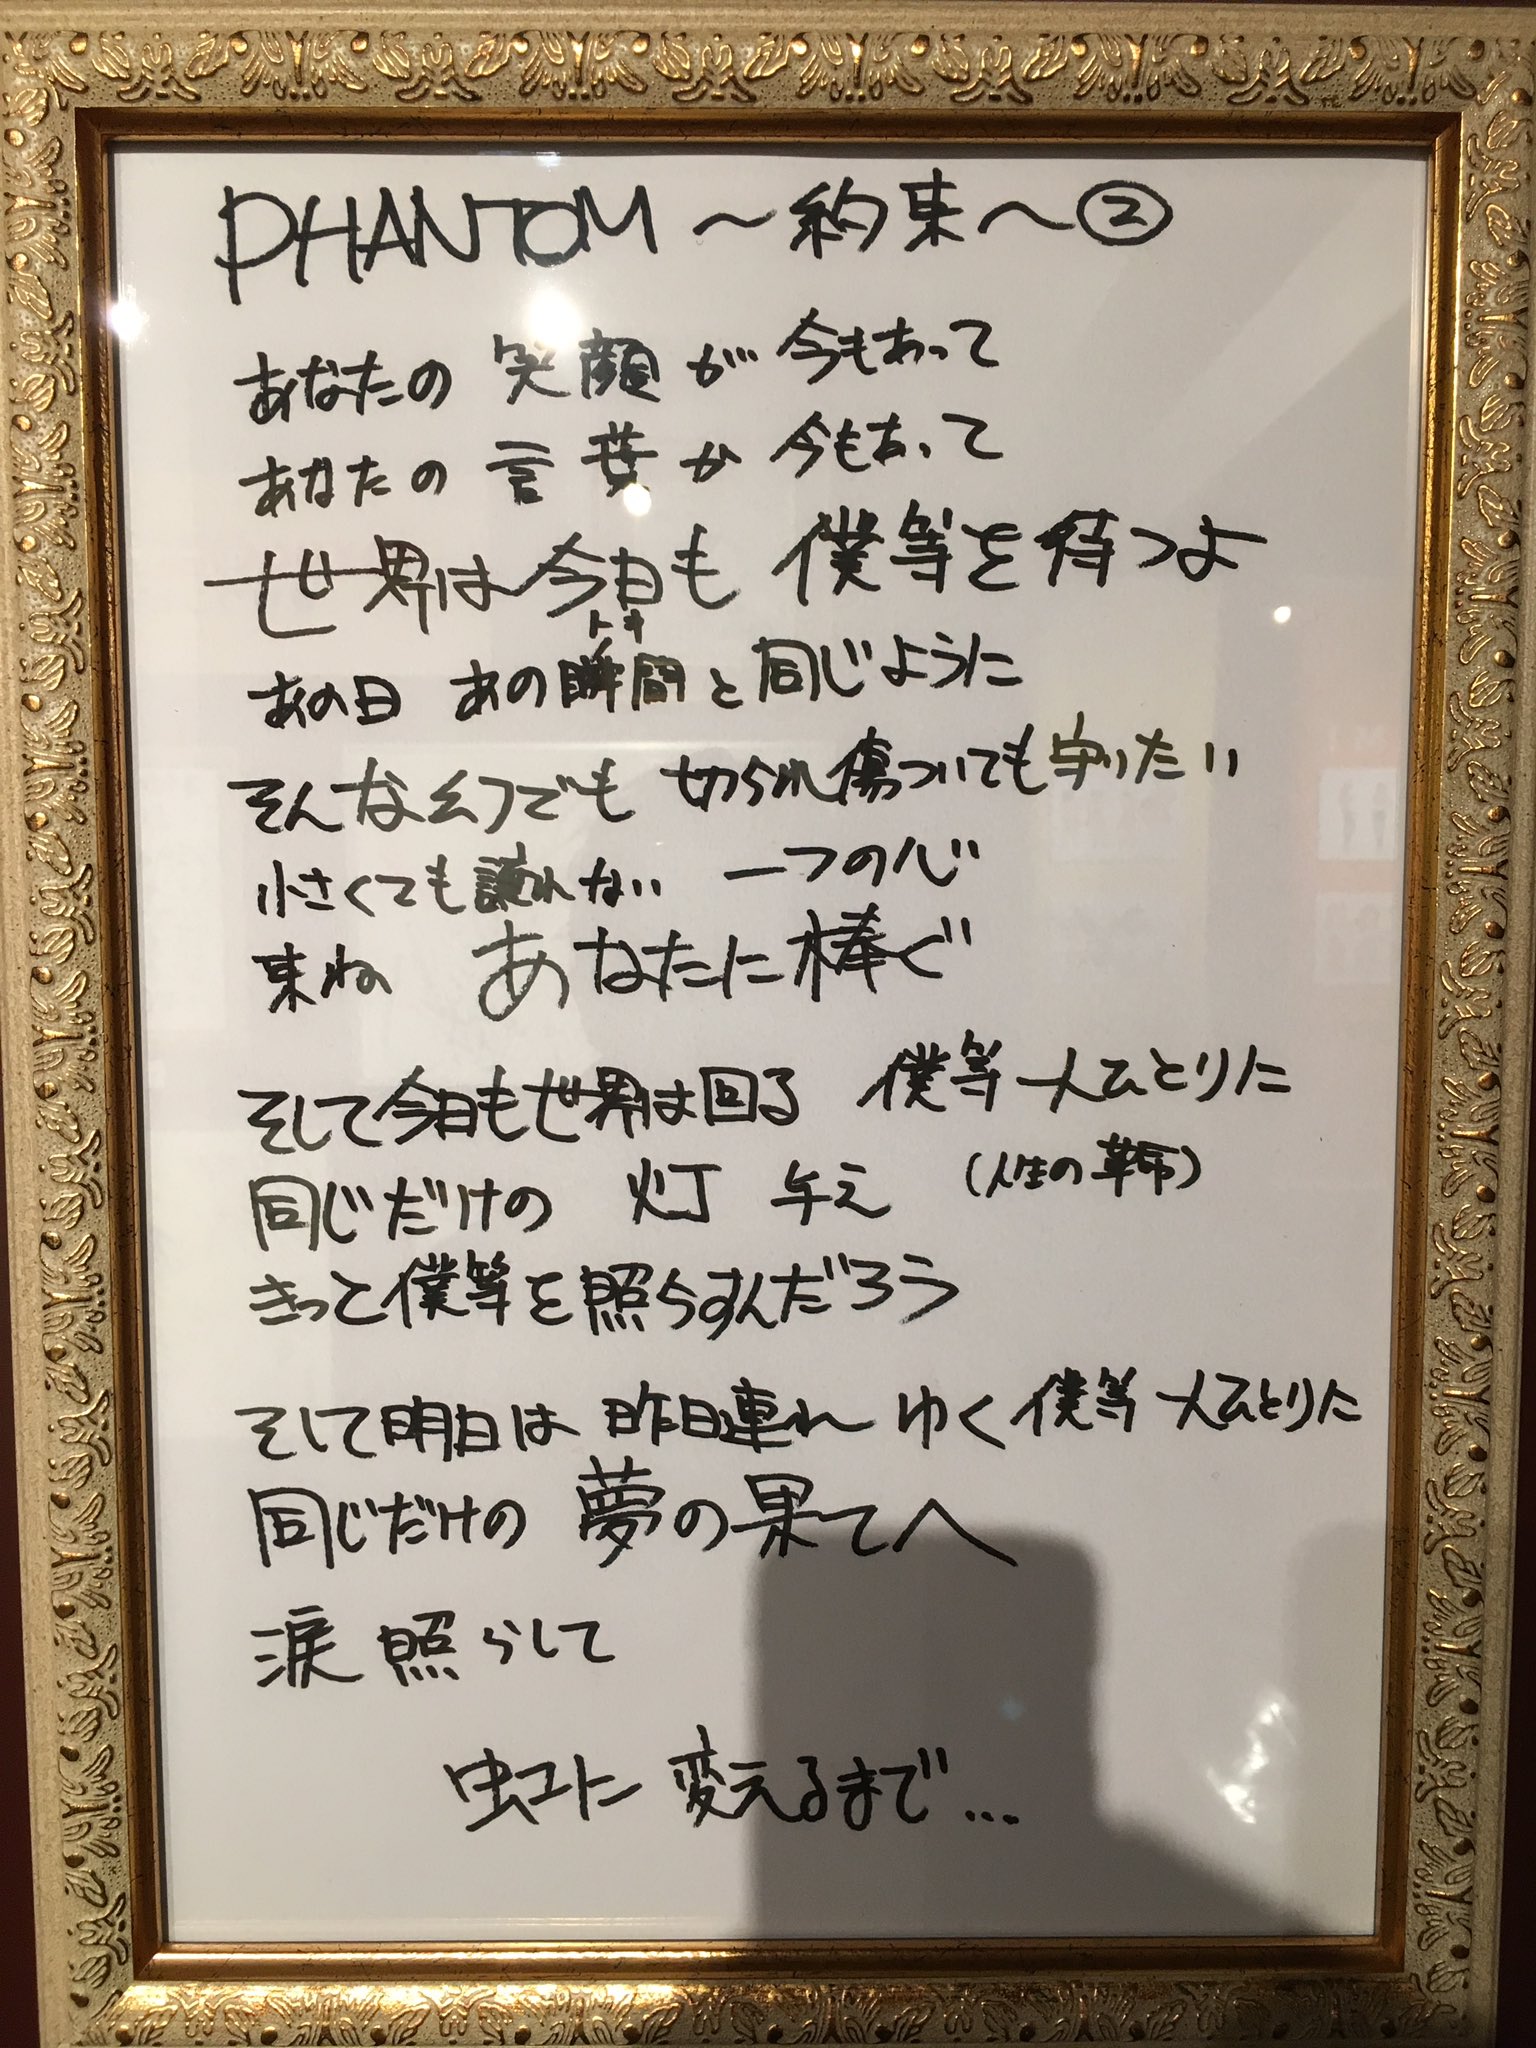 PHANTOM ～約束～②
あなたの 笑顔が 今もあって
あなたの 言葉が 今もあって
世界は今日も 僕等を待つよ
トキ
あの日 あの瞬間と同じように
そんな幻でも 切られ傷ついても守りたい
小さくても譲れない 一つの心
束ね あなたに捧ぐ
そして今日も世界は回る 僕等一人ひとりに
同じだけの 灯 与え (人生の革命)
きっと僕等を照らすんだろう
そして明日は 昨日連れ ゆく 僕等一人ひとりに
同じだけの 夢の果てへ
涙 照らして
虹に 変えるまで...